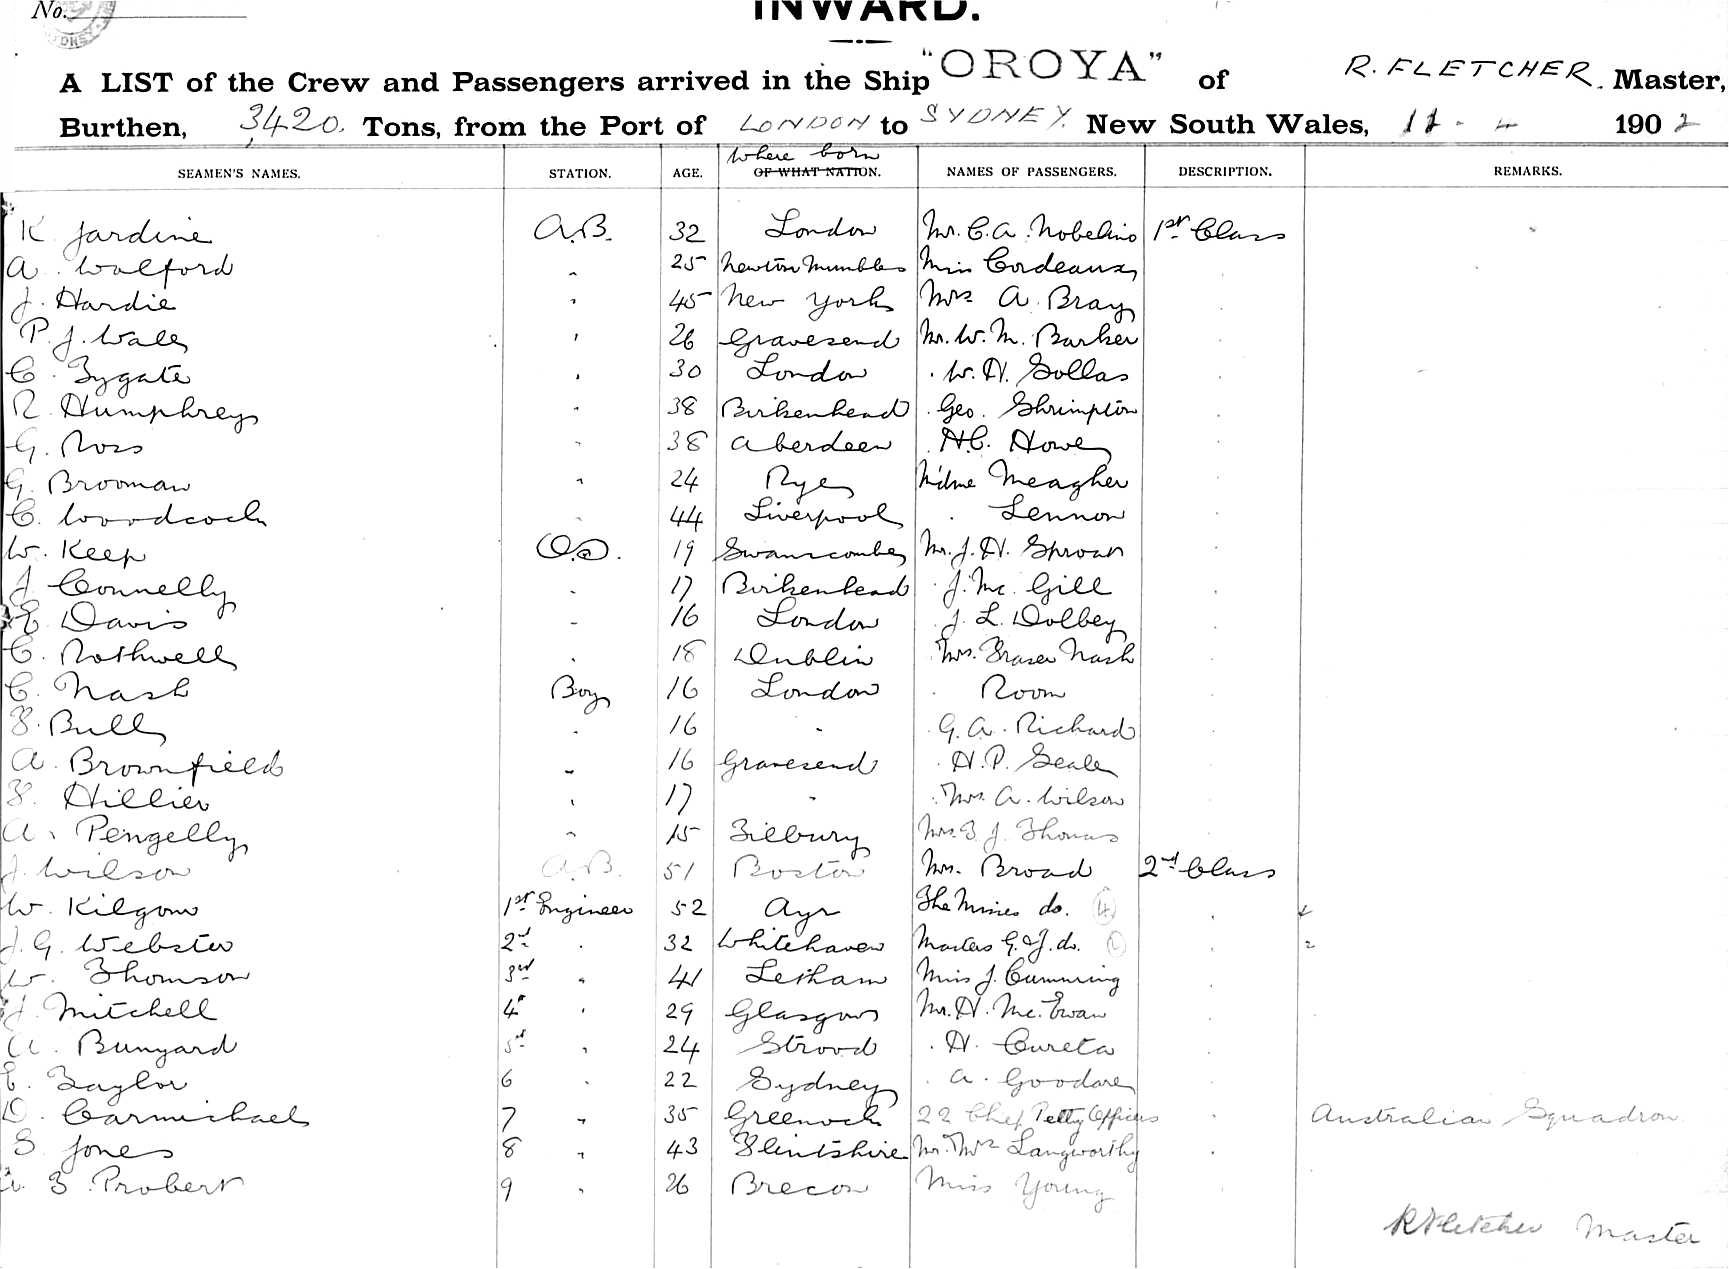 No.
INWARD.
A LIST of the Crew and Passengers arrived in the Ship "OROYA" of R. FLETCHER. Master,
Burthen, 3420. Tons, from the Port of LONDON to SYDNEY. New South Wales, 11 - 4 1902
where born
SEAMEN'S NAMES. STATION. AGE. OF WHAT NATION. NAMES OF PASSENGERS. DESCRIPTION. REMARKS.
K Jardine A.B. 32 London Mr. C. A. Nobelius 1st Class
A. Walford " 25 Newton Mumbles Miss Cordeaux
J. Hardie " 45 New York Mrs A. Bray
P. J. Wall " 26 Gravesend Mr. W. M. Barker
C. Tygate " 30 London " W. H. Sollas
R. Humphreys " 38 Birkenhead " Geo. Shrimpton
G. Ross " 38 Aberdeen " H.C. Howe
G. Brooman " 24 Rye Mdme Meagher
C. Woodcock " 44 Liverpool " Lennon
W. Keep O.S. 19 Swanscombe Mr. J. H. Sproat
J Connelly " 17 Birkenhead " J. Mc. Gill
E Davis " 16 London " J. L. Dolbey
C. Rothwell " 18 Dublin Mrs. Fraser Nash
C. Nash Boy 16 London " Room
F. Bull " 16 " G. A. Richard
A. Brownfield " 16 Gravesend " H. P. Seale
F. Hillier " 17 " Mrs. A. Wilson
A. Pengelly " 15 Tilbury Mrs. T. J. Thomas
J. Wilson A.B. 51 Boston Mrs. Broad 2nd Class
W. Kilgour 1st Engineer 52 Ayr The Misses do. (4) 4
J. G. Webster 2nd " 32 Whitehaven Masters G. & J. do. 2
W. Thomson 3rd " 41 Letham Miss J. Cumming
J. Mitchell 4th " 29 Glasgow Mr. H. Mc. Ewan
A. Bunyard 5th " 24 Strood " H. Cureta
C. Taylor 6 " 22 Sydney " A. Goodare
D. Carmichael 7 " 35 Greenock 22 Chief Petty Officers " Australian Squadron
S Jones 8 " 43 Flintshire Mr. & Mrs Langworthy
A. T. Probert 9 " 26 Brecon Miss Young
R Fletcher Master